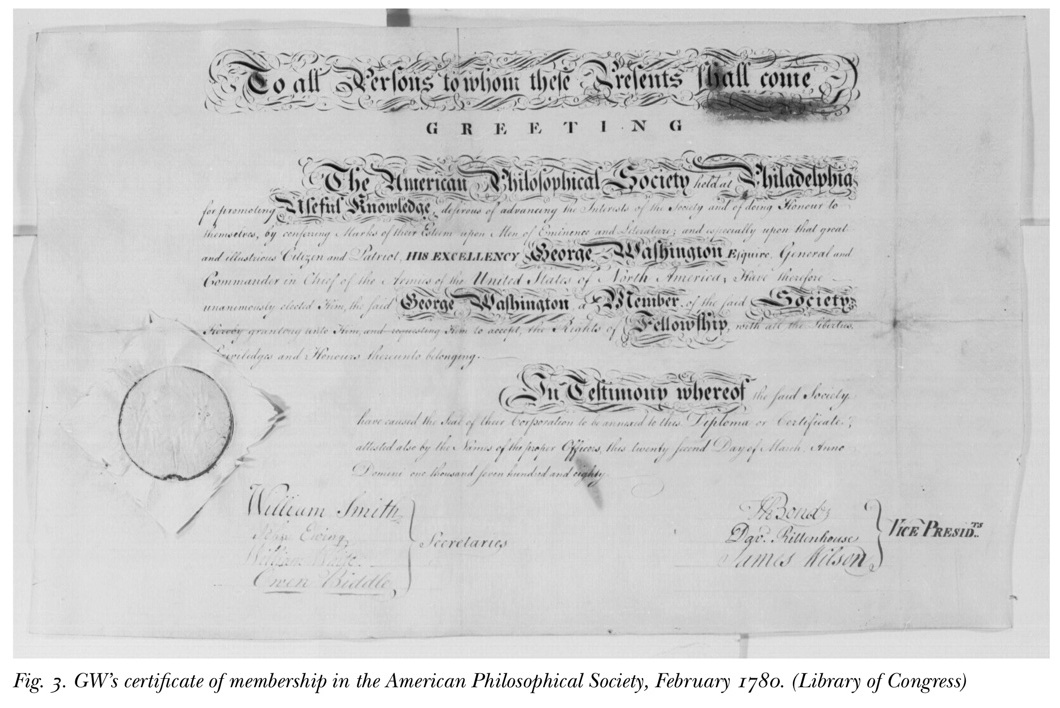 To all Persons to whom these Presents shall come
GREETING
The American Philosophical Society held at Philadelphia
for promoting Useful Knowledge, desirous of advancing the Interests of the Society and of doing Honour to
themselves, by conferring Marks of their Esteem upon Men of Eminence and Literature; and especially upon that great
and illustrious Citizen and Patriot, HIS EXCELLENCY George Washington Esquire, General and
Commander in Chief of the Armies of the United States of North America, Have therefore
unanimously elected Him, the said George Washington a Member of the said Society,
Hereby granting unto Him, and requesting Him to accept, the Rights of Fellowship, with all the Liberties
Priviledges and Honours thereunto belonging.
In Testimony whereof the said Society
have caused the Seal of their Corporation to be annexed to this Diploma or Certificate,
attested also by the Names of the proper Officers, this twenty second Day of March Anno
Domini one thousand seven hundred and eighty
William Smith
John Ewing
William White
Owen Biddle
Secretaries
Th Bond
Dav. Rittenhouse
James Wilson
VICE PRESID.TS
Fig. 3. GW's certificate of membership in the American Philosophical Society, February 1780. (Library of Congress)